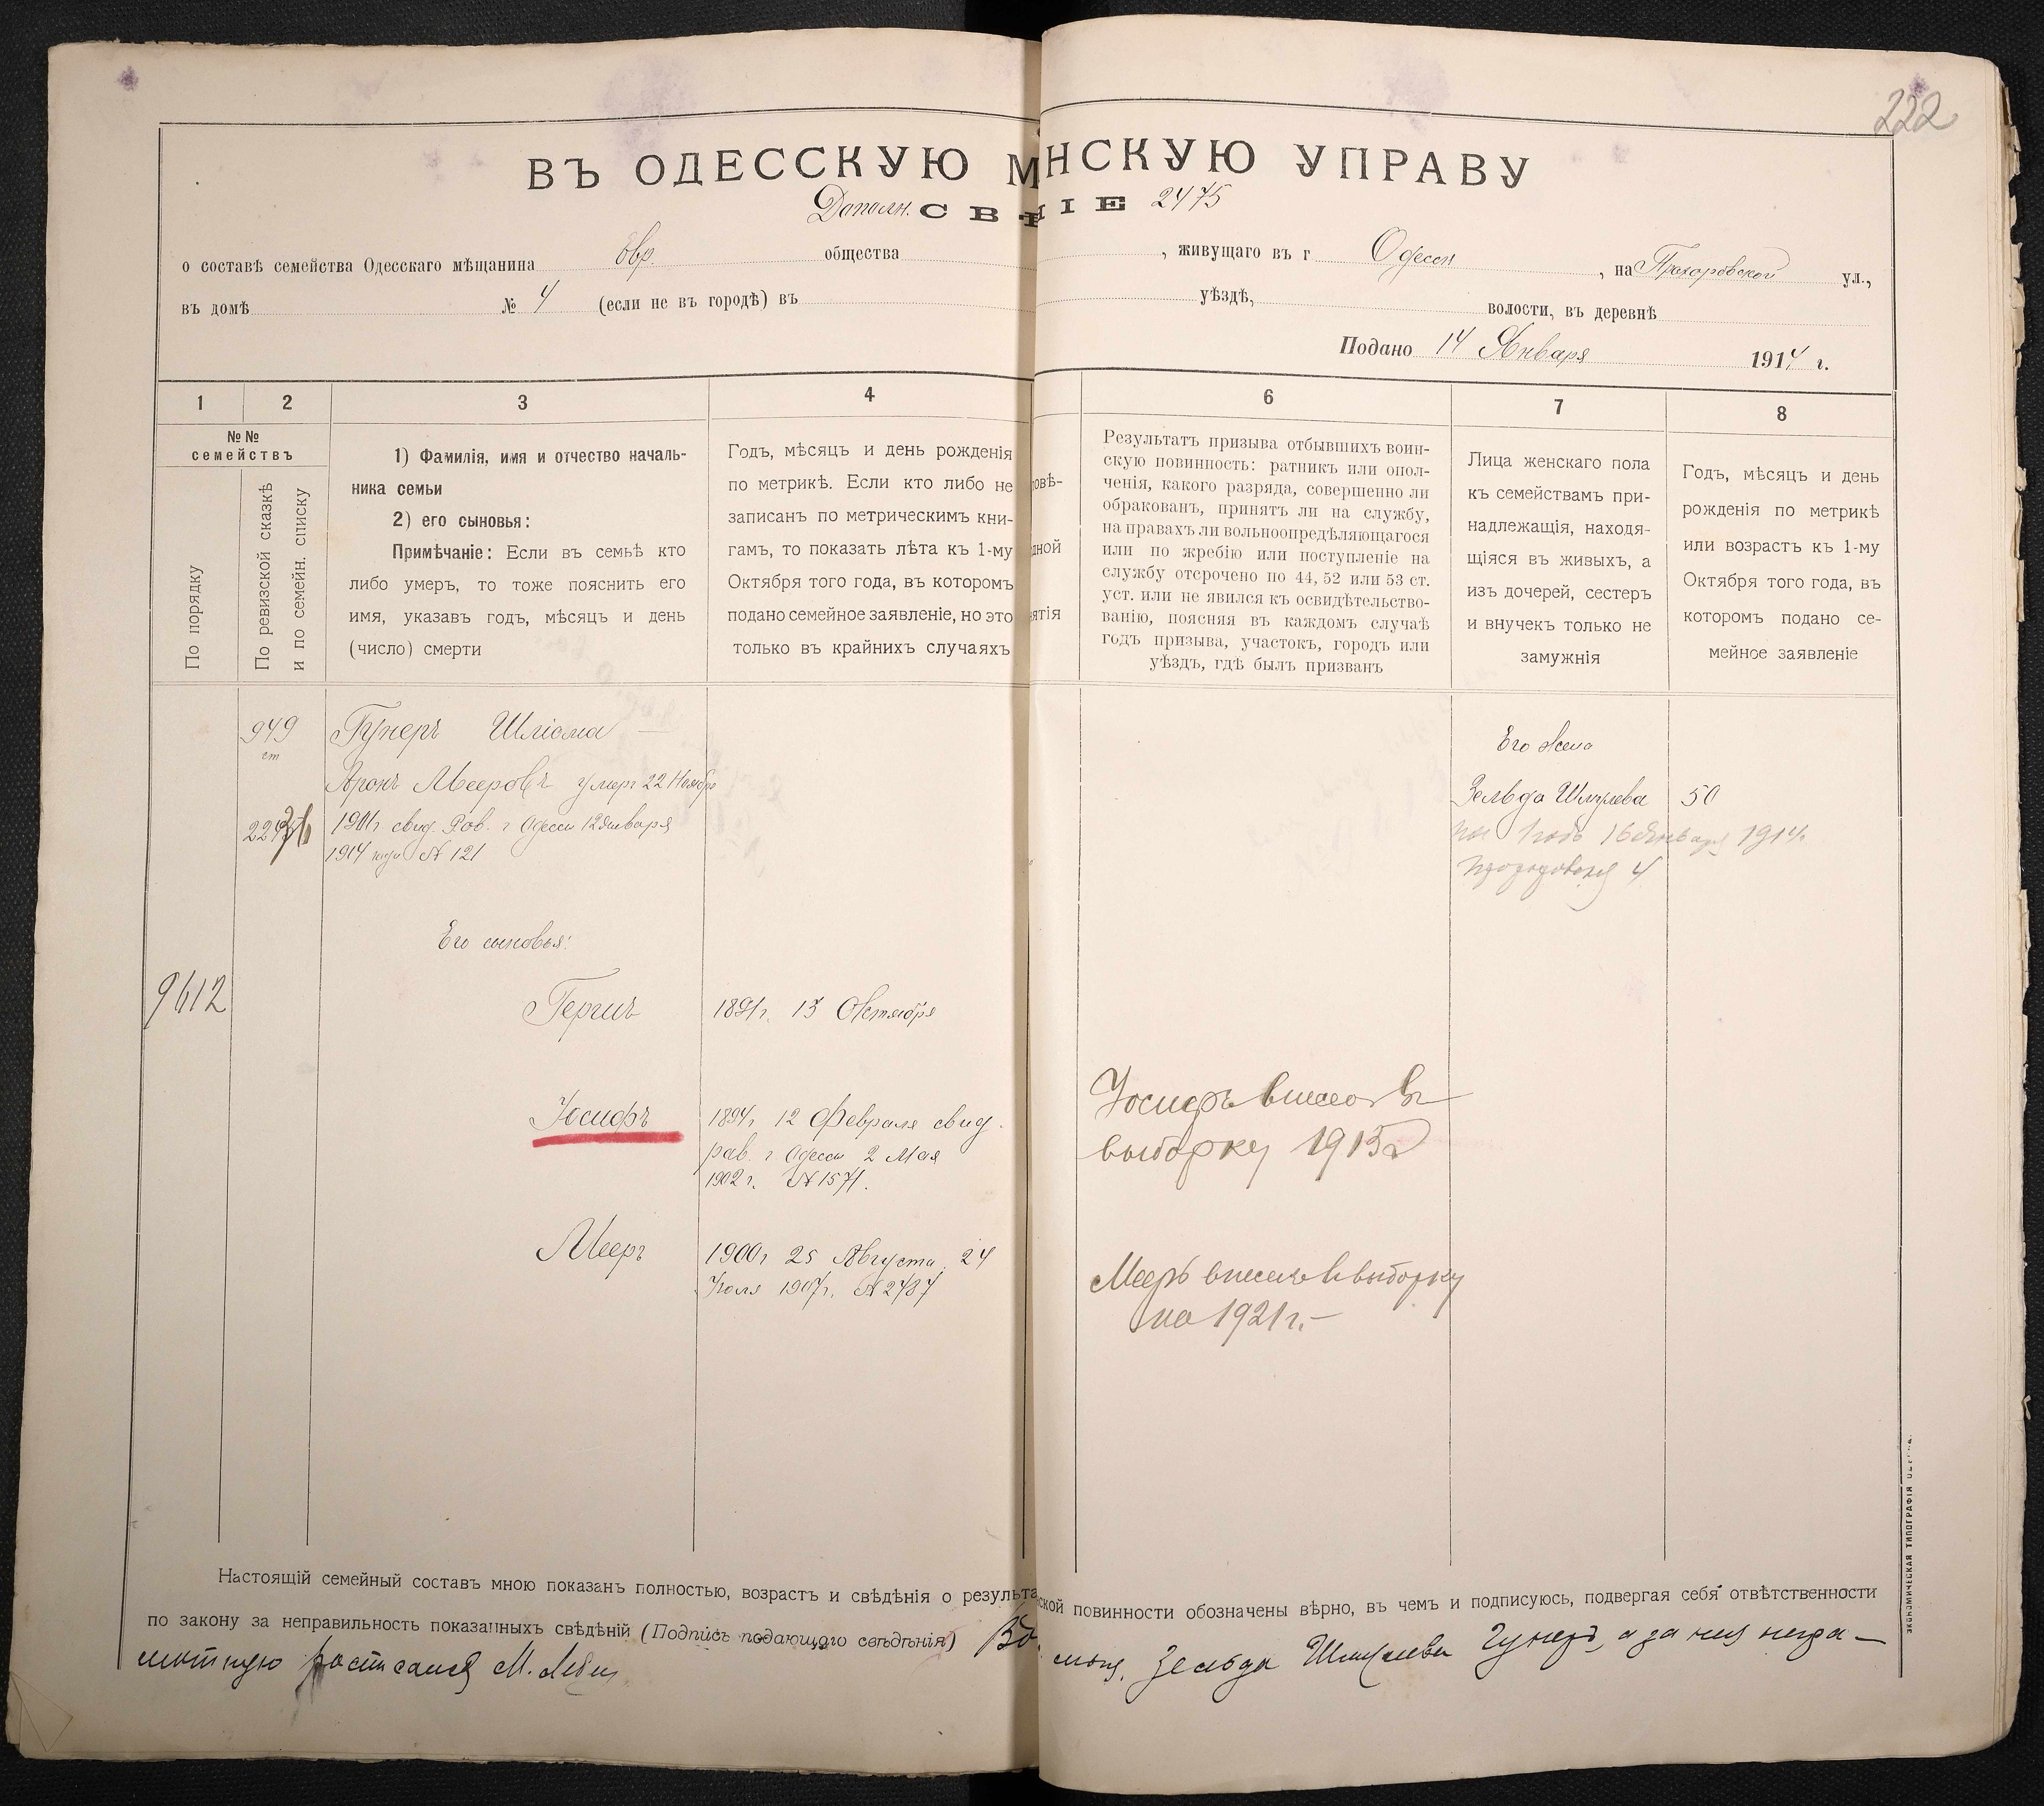 222
ВЪ ОДЕССКУЮ М НСКУЮ УПРАВУ
Дополн. СВѢ НІЕ 2475
о составѣ семейства Одесскаго мѣщанина евр. общества , живущаго въ г Одессѣ , на Прохоровской ул.,
въ домѣ № 4 (если не въ городѣ) въ уѣздѣ, волости, въ деревнѣ
Подано 14 Января 1914 г.
1 2 3 4 6 7 8
№№ семействъ
По порядку
По ревизской сказкѣ
и по семейн. списку
1) Фамилія, имя и отчество началь-
ника семьи
2) его сыновья:
Примѣчаніе: Если въ семьѣ кто
либо умеръ, то тоже пояснить его
имя, указавъ годъ, мѣсяцъ и день
(число) смерти
Годъ, мѣсяцъ и день рожденія
по метрикѣ. Если кто либо не
записанъ по метрическимъ кни-
гамъ, то показать лѣта къ 1-му
Октября того года, въ которомъ
подано семейное заявленіе, но это
только въ крайнихъ случаяхъ
овѣ-
дной
ятія
Результатъ призыва отбывшихъ воин-
скую повинность: ратникъ или опол-
ченія, какого разряда, совершенно ли
обракованъ, принятъ ли на службу,
на правахъ ли вольноопредѣляющагося
или по жребію или поступленіе на
службу отсрочено по 44, 52 или 53 ст.
уст. или не явился къ освидѣтельство-
ванію, поясняя въ каждомъ случаѣ
годъ призыва, участокъ, городъ или
уѣздъ, гдѣ былъ призванъ
Лица женскаго пола
къ семействамъ при-
надлежащія, находя-
щіяся въ живыхъ, а
изъ дочерей, сестеръ
и внучекъ только не
замужнія
Годъ, мѣсяцъ и день
рожденія по метрикѣ
или возрастъ къ 1-му
Октября того года, въ
которомъ подано се-
мейное заявленіе
949 Гунеръ Шліома
ст
Аронъ Мееровъ умер 22 Ноября
1901г свид. Рав. г Одессы 12 Января
1914 года № 121
Его жена
Зельда Шмулева 50
на 1 годъ 16 Января 1914г.
Прохоровская 4
Его сыновья:
9612
Гершъ 1891г. 13 Октября
Іосифъ 1894г. 12 Февраля свид.
рав. г Одессы 2 Мая
1902 г. № 1571.
Іосифъ внесенъ въ
выборку 1915г
Мееръ 1900г 25 Августа 24
Іюля 1907г. № 2787
Мееръ внесенъ въ выборку
на 1921 г.
Настоящій семейный составъ мною показанъ полностью, возрастъ и свѣдѣнія о результа ской повинности обозначены вѣрно, въ чемъ и подписуюсь, подвергая себя отвѣтственности
по закону за неправильность показанныхъ свѣдѣній (Подпись подающаго свѣдѣнія) Зельда Шмулева Гунеръ, а за нея негра-
мотную расписался М.
ЭКОНОМИЧЕСКАЯ ТИПОГРАФІЯ